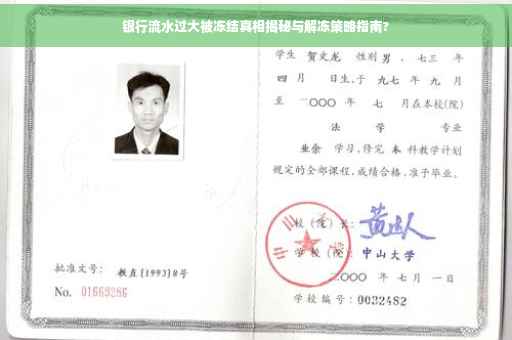 银行流水过大被冻结真相揭秘与解冻策略指南?
学生 贺文龙 性别 男 、七三 年
四 月 日生,于 九七 年 九 月
至 二〇〇〇 年 七 月在本校(院)
法 学 专业
业余 学习,修完 本 科教学计划
规定的全部课程,成绩合格,准予毕业。
校(院)长:
学校(院): 中山大学
二〇〇〇 年 七 月 一 日
学校编号: 0032482
批准文号: 教直(1993)8号
No. 01669286